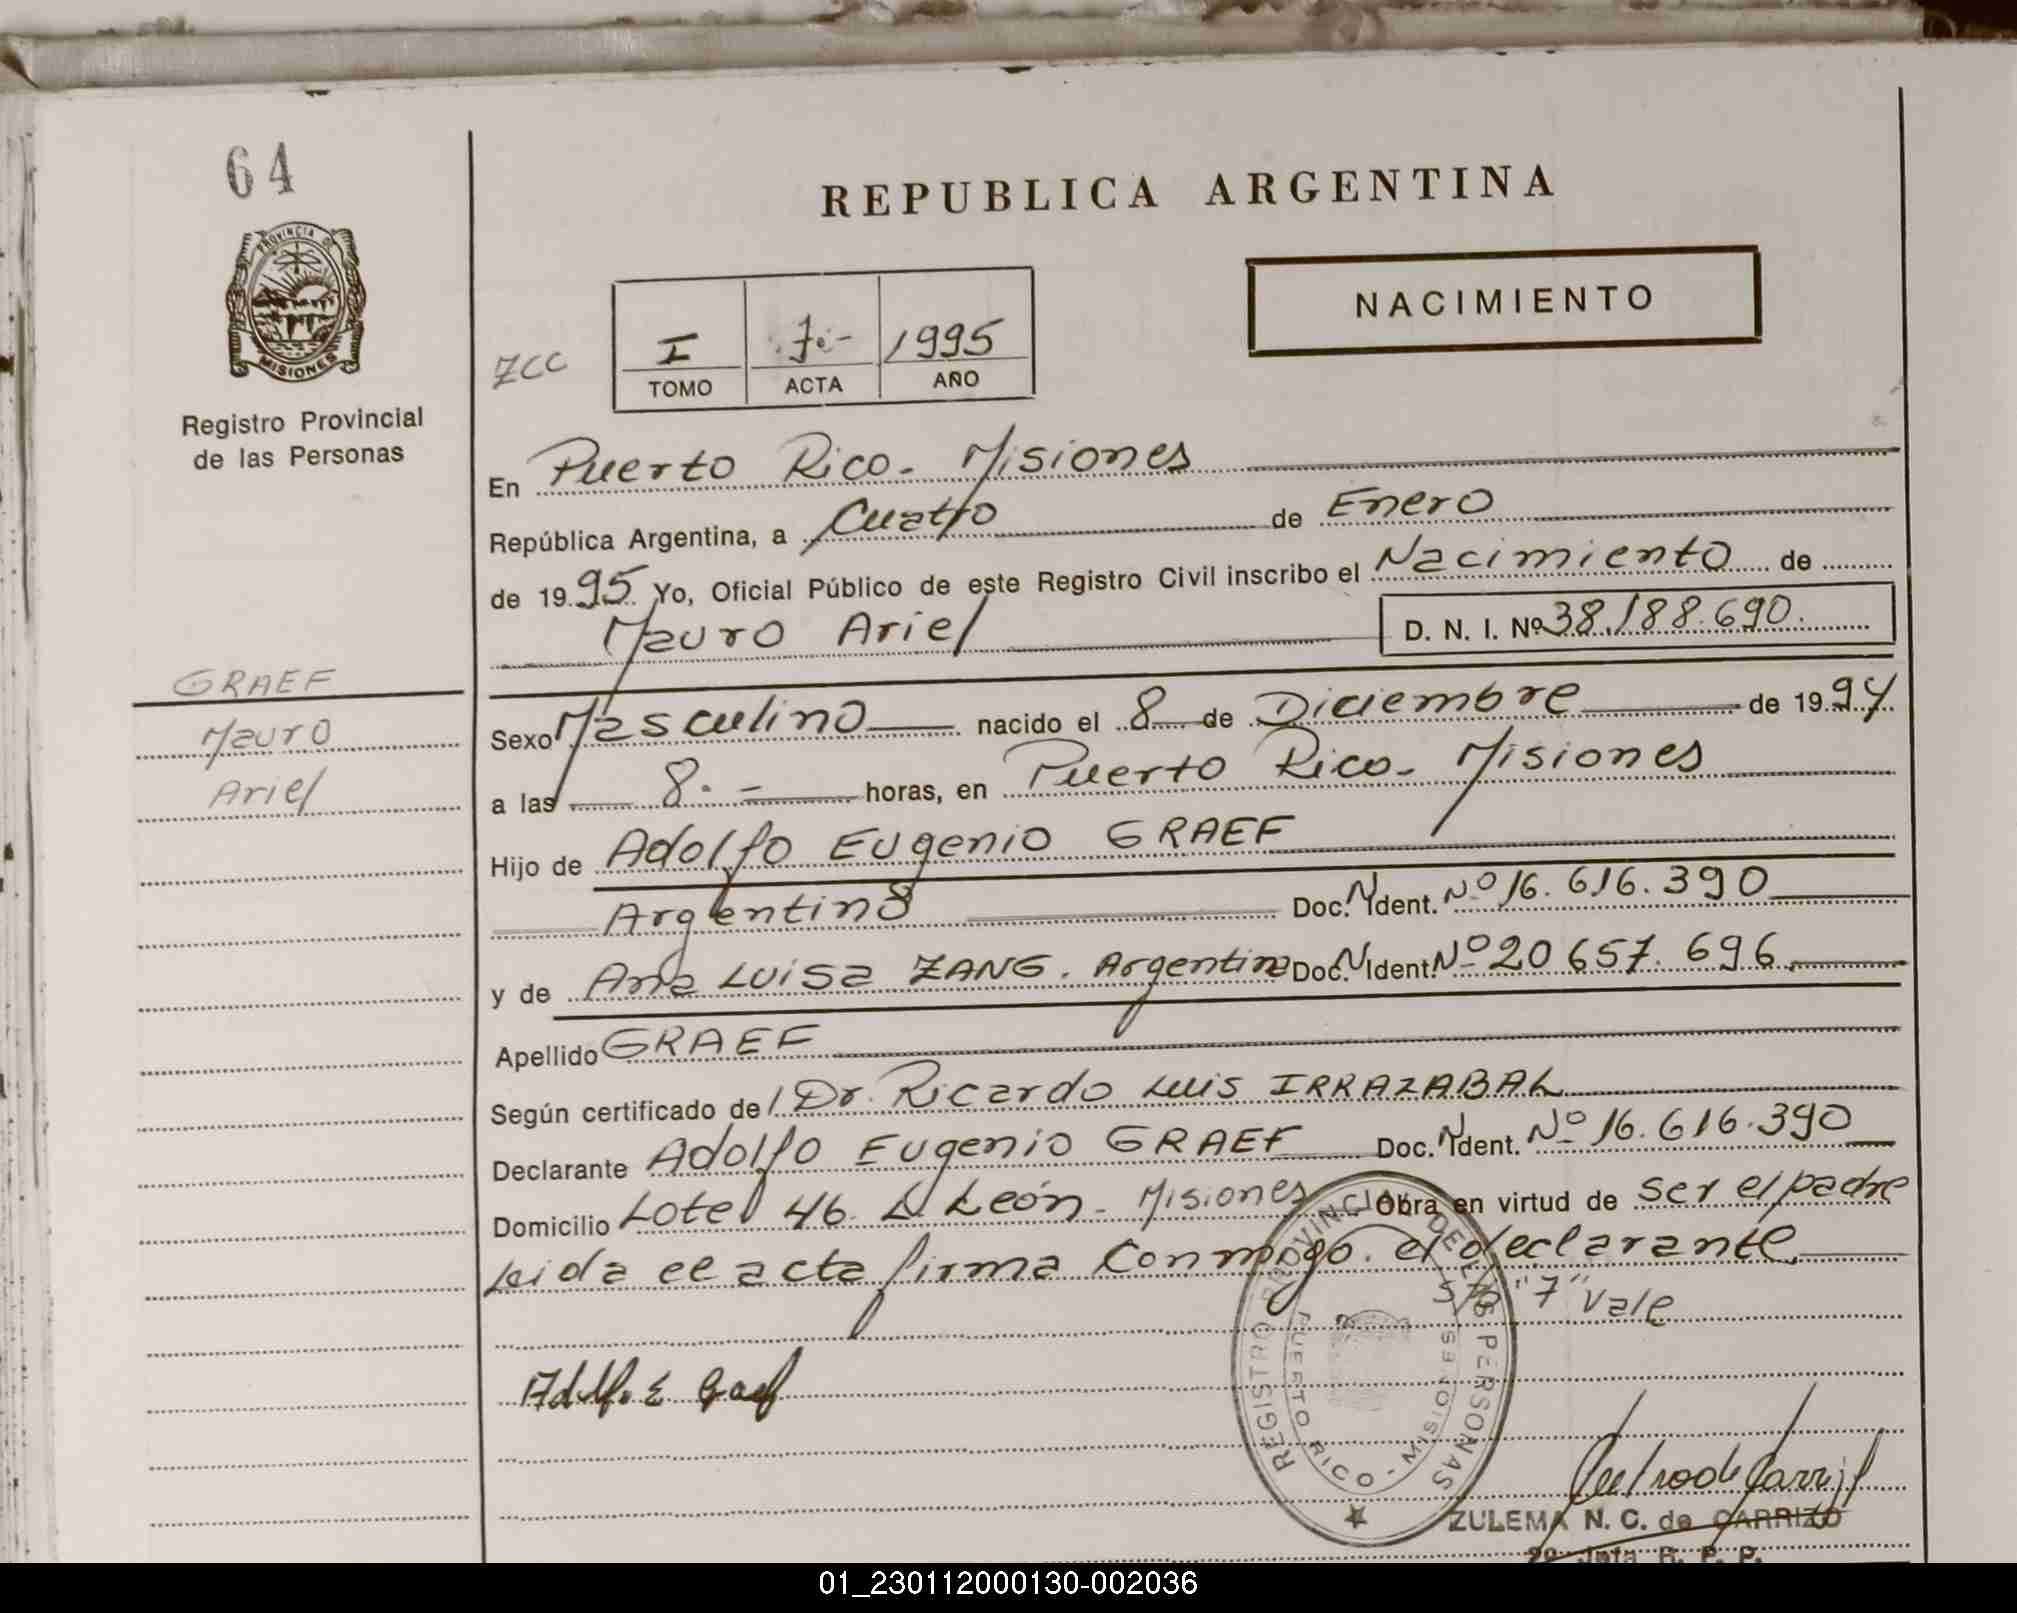 64
REPUBLICA ARGENTINA
PROVINCIA DE
MISIONES
Registro Provincial
de las Personas
NACIMIENTO
ZCC
I 7.- 1995
TOMO ACTA AÑO
En Puerto Rico - Misiones
República Argentina, a Cuatro de Enero
de 1995 Yo, Oficial Público de este Registro Civil inscribo el Nacimiento de
Mauro Ariel D. N. I. Nº 38.188.690.
GRAEF
Mauro
Ariel
Sexo Masculino nacido el 8 de Diciembre de 1994
a las 8. - horas, en Puerto Rico - Misiones
Hijo de Adolfo Eugenio GRAEF
Argentino Doc. N Ident. Nº 16.616.390
y de Ana Luisa ZANG. Argentina Doc. N Ident. Nº 20 657.696
Apellido GRAEF
Según certificado del Dr. Ricardo Luis IRRAZABAL
Declarante Adolfo Eugenio GRAEF Doc. N Ident. Nº 16.616.390
Domicilio Lote 46. L. León - Misiones Obra en virtud de ser el padre
Leida el acta firma conmigo el declarante
S/R "7" Vale
REGISTRO PROVINCIAL DE LAS PERSONAS
PUERTO RICO - MISIONES
Adolfo E Graef
ZULEMA N. C. de CARRIZO
R. P. P.
01_230112000130-002036